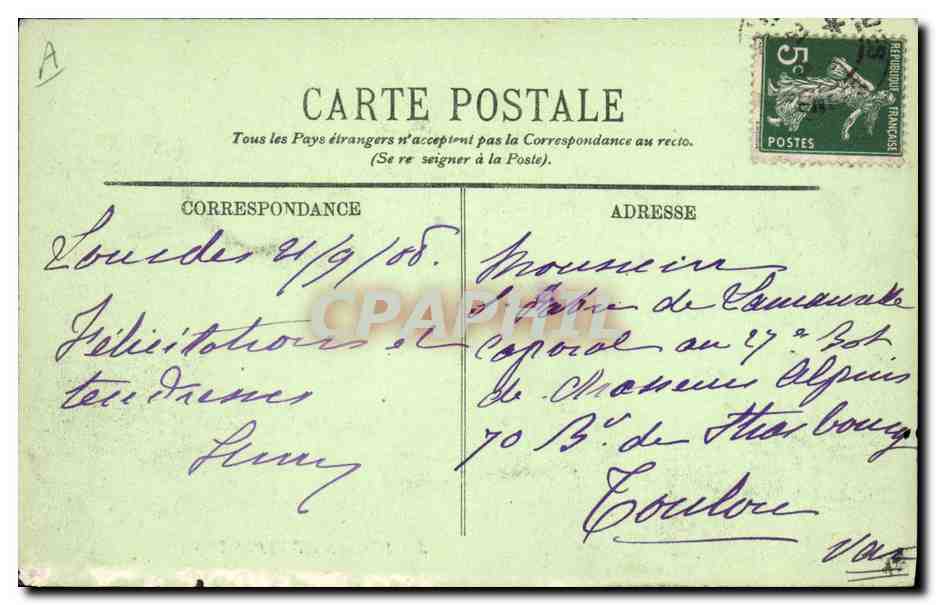 A
CARTE POSTALE
Tous les Pays étrangers n'acceptent pas la Correspondance au recto.
(Se re seigner à la Poste).
REPUBLIQUE FRANÇAISE
5c
POSTES
CORRESPONDANCE
Lourdes 21/9/08.
Félicitations et
tendresses
Henry
ADRESSE
Monsieur
de Lamanelle
caporal au 27e Bat
de Chasseurs Alpins
70 Bd de Strasbourg
Toulon
Var
CPAPHIL